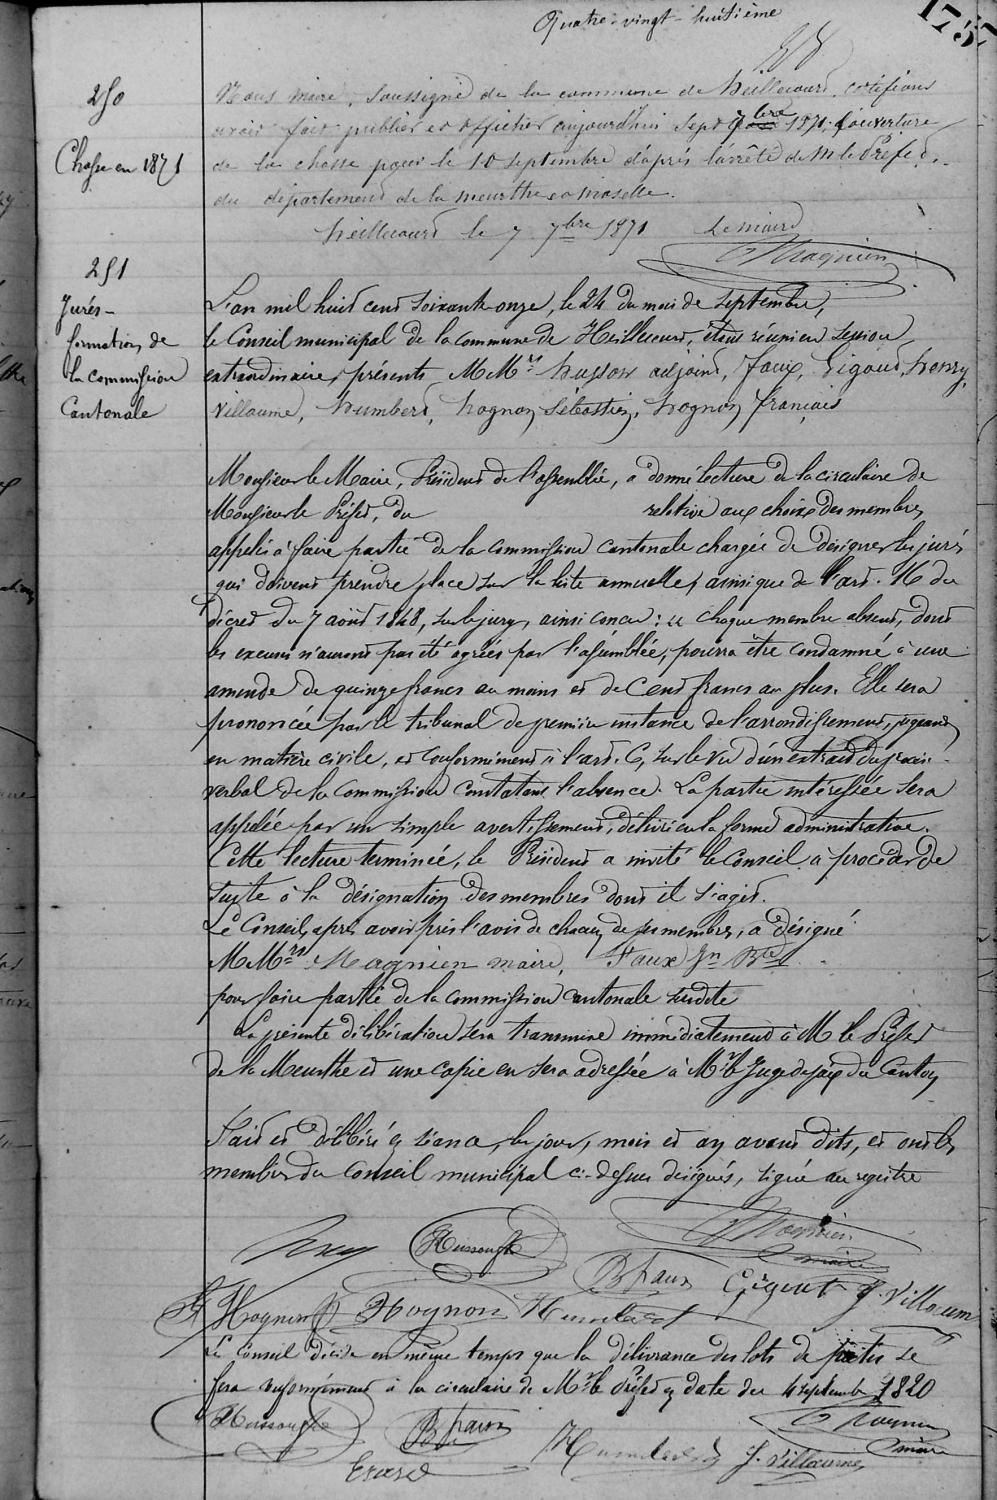 Quatre-vingt-huitième
175
250
Chasse en 1871
Nous maire, soussigné de la commune de heillecourt, certifions
avoir fait publier et afficher aujourd'hui sept 7bre 1871, l'ouverture
de la chasse pour le 10 septembre d'après l'arrêté de M le Préfet,
du département de la meurthe et moselle.
heillecourt le 7 7bre 1871 Le maire
Magnien
251
Jurés -
formation de
la commission
Cantonale
L'an mil huit cent soixante onze, le 24 du mois de septembre,
le Conseil municipal de la commune de Heillecourt, étant réuni en session
extraordinaire, présents MMrs husson adjoint, Faux, Gigout, henry,
Villaume, humbert, hognon Sébastien, hognon françois
Monsieur le Maire, Président de l'assemblée, a donné lecture de la circulaire de
Monsieur le Préfet, du relative aux choix des membres
appelés à faire partie de la Commission Cantonale chargée de désigner les jurés
qui doivent prendre place sur la liste annuelle, ainsi que de l'art. 16 du
décret du 7 août 1848, sur le jury, ainsi conçu : « chaque membre absent, dont
les excuses n'auront pas été agréées par l'assemblée, pourra être condamné à une
amende de quinze francs au moins et de Cent francs au plus. Elle sera
prononcée par le tribunal de première instance de l'arrondissement, jugeant
en matière civile, et conformément à l'art. 6, sur le vu d'un extrait du procès-
verbal de la Commission Constatant l'absence. La partie intéressée sera
appelée par un simple avertissement, délivré en la forme administrative.
Cette lecture terminée, le Président a invité le Conseil à procéder de
suite à la désignation des membres dont il s'agit.
Le Conseil, après avoir pris l'avis de chacun de ses membres, a désigné
MMrs Magnien maire, Faux Jn Bte
pour faire partie de la Commission Cantonale susdite
La présente délibération sera transmise immédiatement à M le Préfet
de la Meurthe et une copie en sera adressée à Mr le Juge de paix du Canton
Fait et délibéré en séance, les jour, mois et an avant dits, et ont les
membres du Conseil municipal ci-dessus désignés, signé au registre
Husson Magnien
maire
B faux Gigout J. Villaume
Hognon Hognon Humbert
Le Conseil décide en même temps que la délivrance des lots de se
fera conformément à la circulaire de Mr le Préfet en date du 4 septembre 1820
Husson B faux Magnien
maire
Humbert J. Villaume